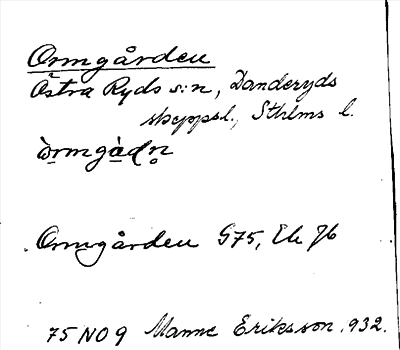 Ormgården
Östra Ryds s:n, Danderyds
skeppsl., Sthlms l.
òrmgàdn̥
Ormgården G75, Ek 76
75 NO 9 Manne Eriksson 1932.